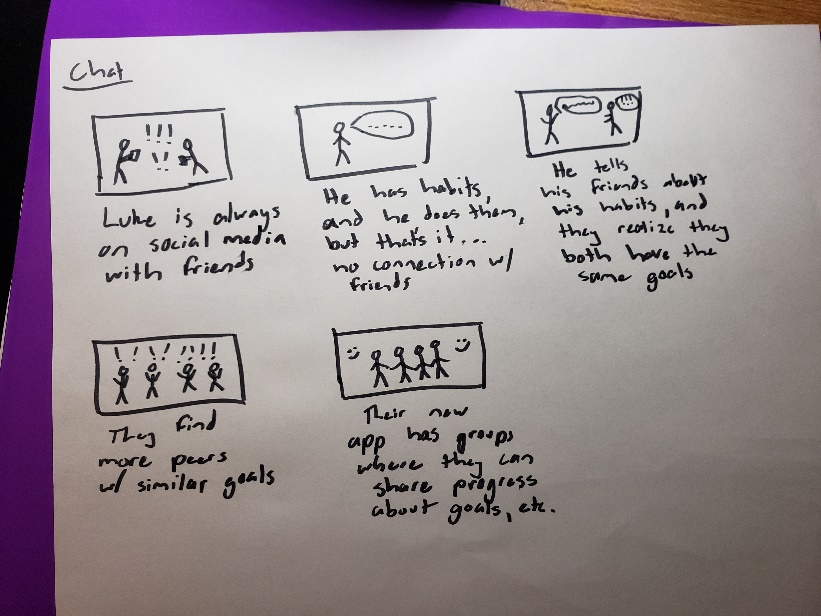 Chat
!!!
!!
Luke is always
on social media
with friends
He has habits,
and he does them,
but that's it...
no connection w/
friends
!!!
He tells
his friends about
his habits, and
they realize they
both have the
same goals
They find
more peers
w/ similar goals
Their new
app has groups
where they can
share progress
about goals, etc.